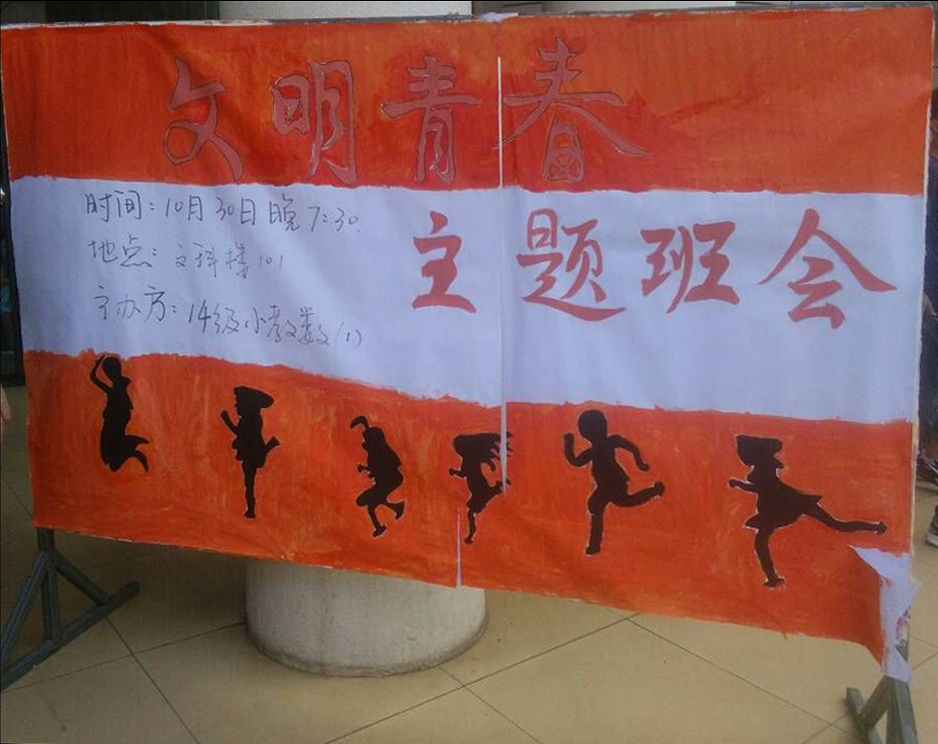 文明青春
主题班会
时间：10月30日晚7:30.
地点：文科楼101
主办方：14级小教数(1)